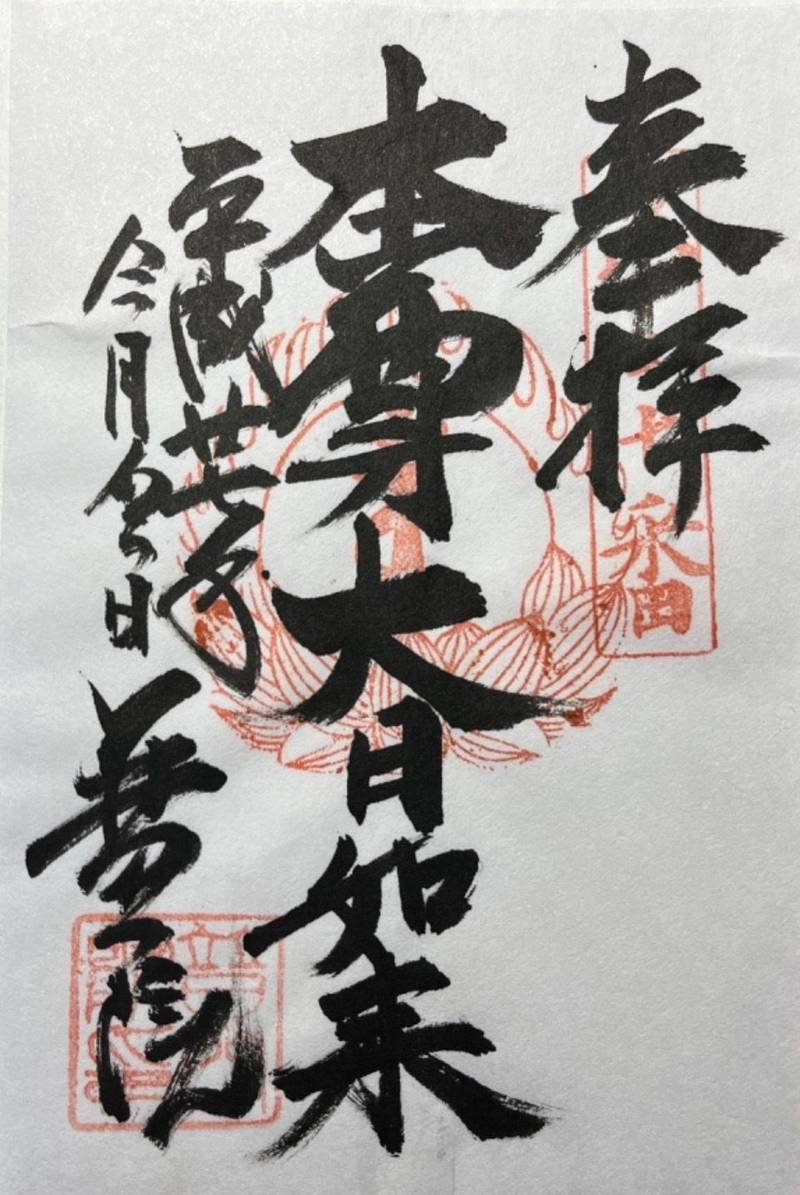 奉拝
十番
本尊大日如来
平成廿七年
今月今日
院